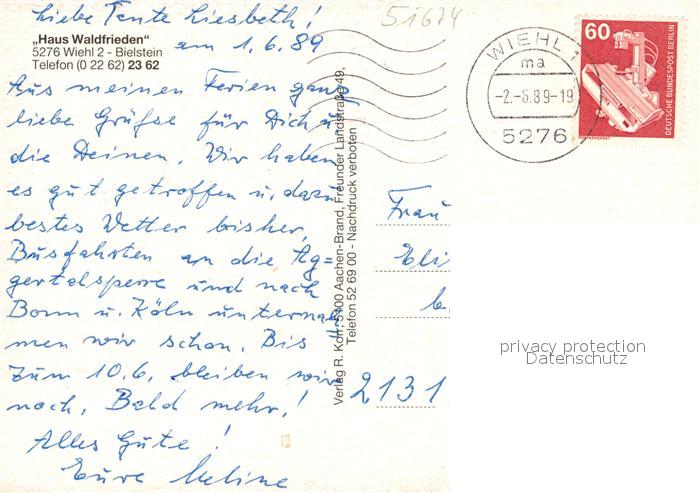 Liebe Tante Liesbeth!
51674
„Haus Waldfrieden"
5276 Wiehl 2 - Bielstein
Telefon (0 22 62) 23 62
am 1.6.89
Aus meinen Ferien ganz
liebe Grüße für Dich u.
die Deinen. Wir haben
es gut getroffen u. dazu
bestes Wetter bisher,
Busfahrten an die Ag=
gertalsperre und nach
Bonn u. Köln unternah
men wir schon. Bis
zum 10.6. bleiben wir
noch. Bald mehr!
Alles Gute!
Eure
Verlag R. Korr, 5100 Aachen-Brand, Freunder Landstraße 49,
Telefon 52 69 00 - Nachdruck verboten
WIEHL 1
ma
-2.-6.89-19
5276
60
DEUTSCHE BUNDESPOST BERLIN
Frau
Eli
2131
privacy protection
Datenschutz